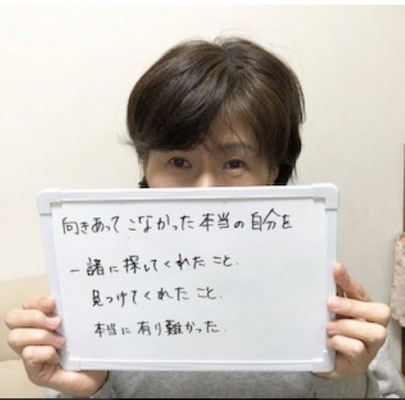 向きあってこなかった本当の自分を
一緒に探してくれたこと.
見つけてくれたこと.
本当に有り難かった.